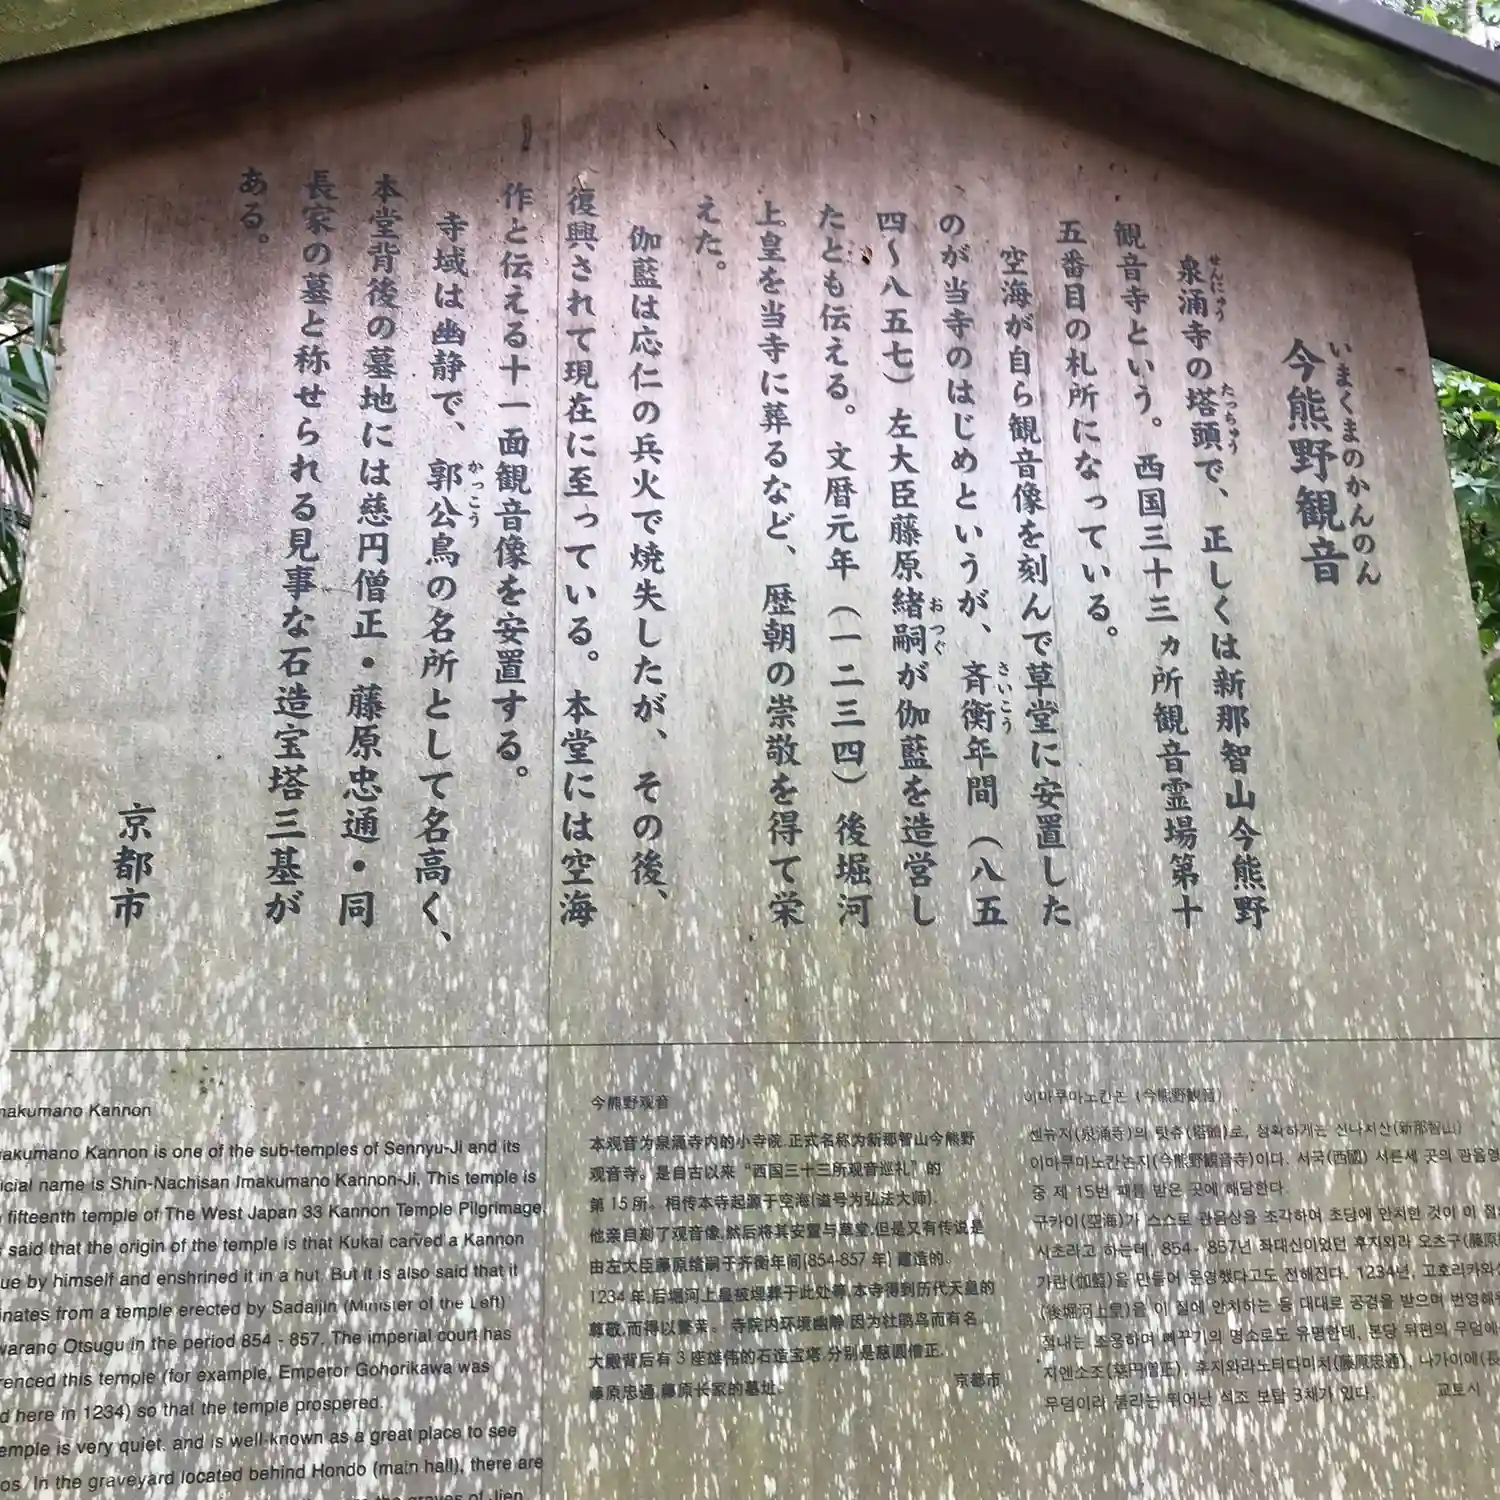 今熊野観音
いまくまのかんのん
泉涌寺の塔頭で、正しくは新那智山今熊野
せんにゅう
たっちゅう
観音寺という。西国三十三ヵ所観音霊場第十
五番目の札所になっている。
空海が自ら観音像を刻んで草堂に安置した
のが当寺のはじめというが、斉衡年間（八五
さいこう
四〜八五七）左大臣藤原緒嗣が伽藍を造営し
おつぐ
たとも伝える。文暦元年（一二三四）後堀河
上皇を当寺に葬るなど、歴朝の崇敬を得て栄
えた。
伽藍は応仁の兵火で焼失したが、その後、
復興されて現在に至っている。本堂には空海
作と伝える十一面観音像を安置する。
寺域は幽静で、郭公鳥の名所として名高く、
かっこう
本堂背後の墓地には慈円僧正・藤原忠通・同
長家の墓と称せられる見事な石造宝塔三基が
ある。
京都市
makumano Kannon
akumano Kannon is one of the sub-temples of Sennyu-Ji and its
icial name is Shin-Nachisan Imakumano Kannon-Ji. This temple is
fifteenth temple of The West Japan 33 Kannon Temple Pilgrimage.
said that the origin of the temple is that Kukai carved a Kannon
ue by himself and enshrined it in a hut. But it is also said that it
inates from a temple erected by Sadaijin (Minister of the Left)
warano Otsugu in the period 854 - 857. The imperial court has
renced this temple (for example, Emperor Gohorikawa was
d here in 1234) so that the temple prospered.
emple is very quiet, and is well-known as a great place to see
os. In the graveyard located behind Hondo (main hall), there are
the graves of Jien
今熊野观音
本观音为泉涌寺内的小寺院.正式名称为新那智山今熊野
观音寺。是自古以来“西国三十三所观音巡礼”的
第 15 所。相传本寺起源于空海(谥号为弘法大师).
他亲自刻了观音像,然后将其安置与草堂,但是又有传说是
由左大臣藤原绪嗣于齐衡年间(854-857 年) 建造的。
1234 年,后堀河上皇被埋葬于此处等,本寺得到历代天皇的
尊敬,而得以繁荣。 寺院内环境幽静,因为杜鹃鸟而有名.
大殿背后有 3 座雄伟的石造宝塔.分别是慈圆僧正.
藤原忠通,藤原长家的墓址。
京都市
이마쿠마노칸논 (今熊野観音)
센뉴지(泉涌寺)의 탓츄(塔頭)로, 정확하게는 신나치산(新那智山)
이마쿠마노칸논지(今熊野観音寺)이다. 서국(西國) 서른세 곳의 관음영
중 제 15번 패를 받은 곳에 해당한다.
쿠카이(空海)가 스스로 관음상을 조각하여 초당에 안치한 것이 이 절
시초라고 하는데, 854- 857년 좌대신이었던 후지와라 오츠구(藤原
가란(伽藍)을 만들어 운영했다고도 전해진다. 1234년, 고호리카와
(後堀河上皇)을 이 절에 안치하는 등 대대로 공경을 받으며 번영해
절내는 조용하며 뻐꾸기의 명소로도 유명한데, 본당 뒤편의 무덤에
지엔소조(慈円僧正), 후지와라노타다미치(藤原忠通), 나가이에(長
무덤이라 불리는 뛰어난 석조 보탑 3채가 있다.
교토시